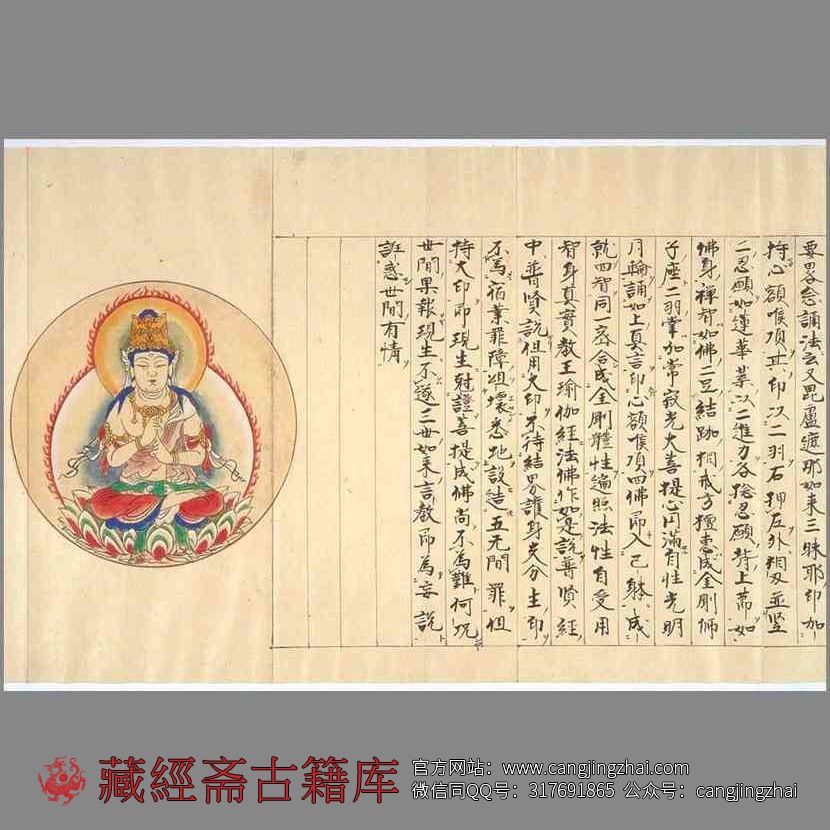 要畧念誦法云又毘盧遮那如来三昧耶印加
持心額喉頂其印以二羽右押左外相叉並竪
二忍願如蓮華葉以二進力各捻忍願背上節如
佛身禪智如佛二豆結跏相戒方檀惠成金剛師
子座二羽掌加常寂光大菩提心円滿自性光明
月輪誦如上真言印心額喉頂四佛印入己躰成
就四智同一密合成金剛體性遍照法性自受用
智身真實教王瑜伽經法佛作如是說普贤經
中普贤說但用大印不待結界護身支分生印
不為宿業罪障沮壞悉地設造五无間罪但
持大印即現生尅證菩提成佛尚不為難何况
世間果報現生不遂三世如来言教即為妄說
誑惑世間有情
藏經斋古籍库
官方网站：www.cangjingzhai.com
微信同QQ号：317691865 公众号：cangjingzhai